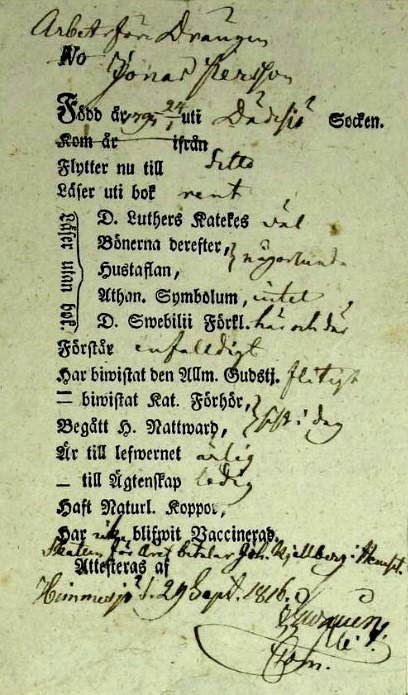 Arbetsföre Drängen
No Jonas Persson
Född år 1795 24/1 uti Dädesjö Socken.
Kom år ifrån
Flytter nu till ditto
Läser uti bok rent
Läser utan bok.
D. Luthers Katekes väl
Bönerna derefter,
Hustaflan, någorlunda
Athan. Symbolum, intet
D. Swebilii Förkl. här och där
Förstår enfalldigt
Har biwistat den Allm. Gudstj. flitigt
— biwistat Kat. Förhör,
Begått H. Nattward, sist i dag
Är till lefwernet ärlig
— till Ägtenskap ledig
Haft Naturl. Koppor,
Har blifwit Vaccinerad.
Skatten för året betalar Joh. Kjellberg i
Attesteras af
Himmersjö d. 29 Sept. 1816.
Com.